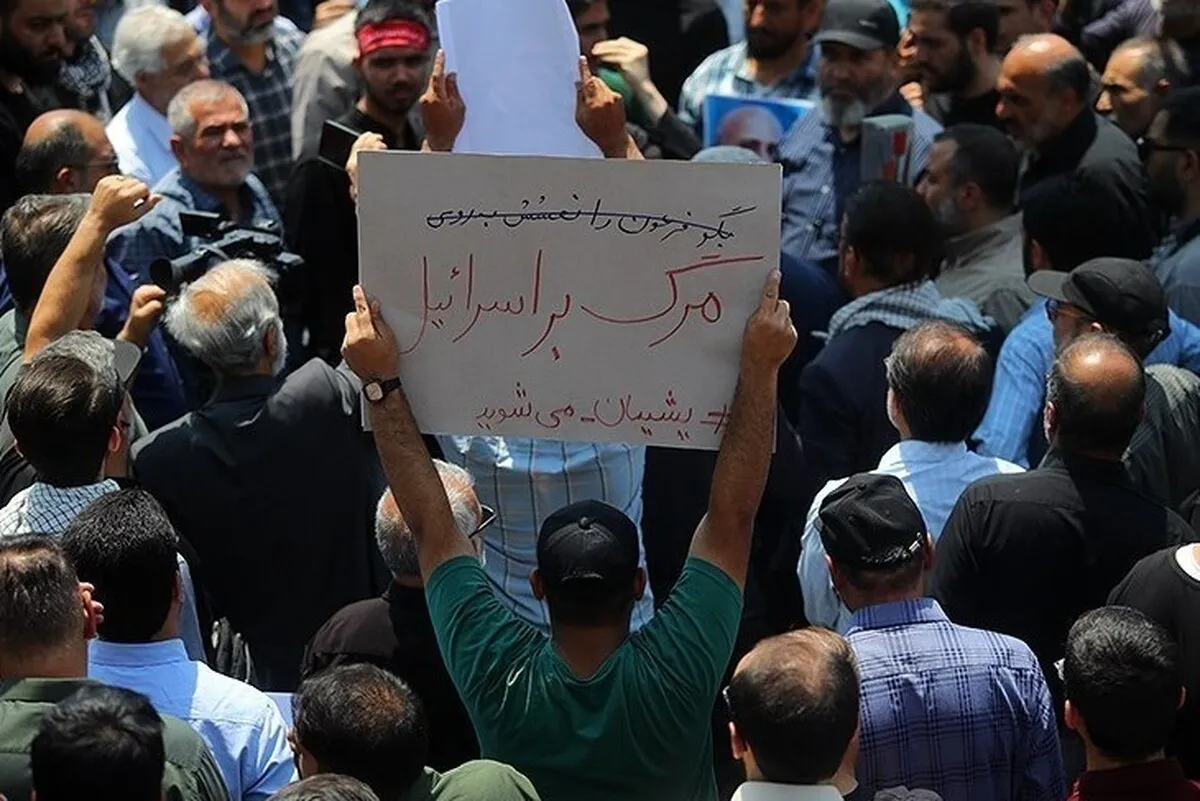 بگو فرعون را نعشش بیروی
مرگ بر اسرائیل
# پشیمان_می شوید